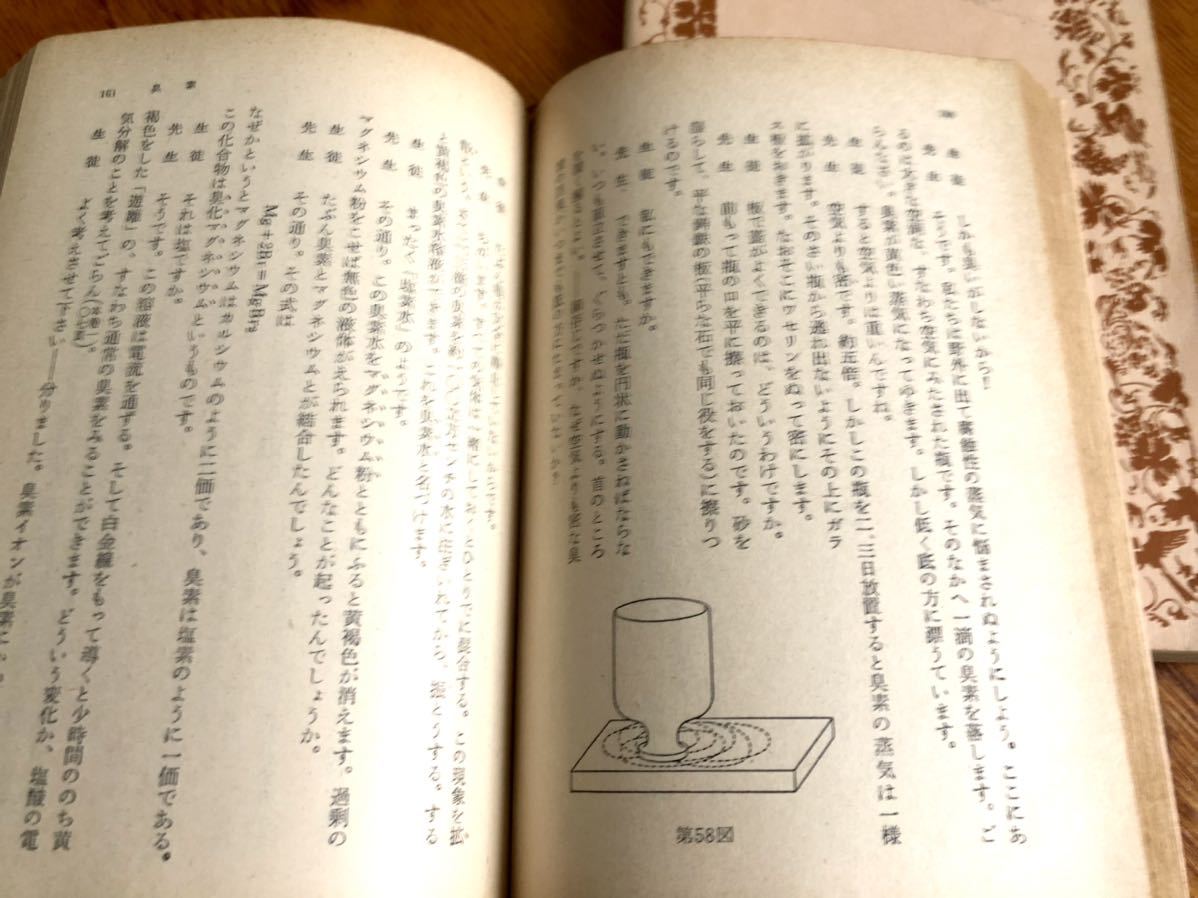 生徒　しかも臭いがしないから!
先生　そうです。私たちは野外に出て腐蝕性の蒸気に悩まされぬようにしよう。ここにあ
るのは大きな空瓶、すなわち空気にみたされた瓶です。そのなかへ一滴の臭素を落します。ご
らんなさい。臭素が黄色い蒸気になってゆきます。しかし低く底の方に漂うています。
生徒　すると空気よりは重いんですね。
先生　空気よりも密です。約五倍。しかしこの瓶を二、三日放置すると臭素の蒸気は一様
に拡がります。そのさい瓶から逃れ出ないようにその上にガラ
ス板をおきます。なおそこにワセリンをぬって密にします。
生徒　板で蓋がよくできるのは、どういうわけですか。
先生　前もって瓶の口を平に擦っておいたのです。砂を
濡らして、平な鋳鉄の板(平らな石でも同じ役をする)に擦りつ
けるのです。
生徒　私にもできますか。
先生　できますとも。ただ瓶を円状に動かさねばならな
い。いつも直立させて、ぐらつかせぬようにする。首のところ
第58図
161 臭素
散という。
生徒　まったく「塩素水」のようです。
先生　その通り。この臭素水をマグネシウム粉とともにふると黄褐色が消えます。過剰の
マグネシウム粉をこせば無色の液体がえられます。どんなことが起ったんでしょうか。
生徒　たぶん臭素とマグネシウムとが結合したんでしょう。
先生　その通り。その式は
Mg＋2Br＝MgBr₂
なぜかというとマグネシウムはカルシウムのように二価であり、臭素は塩素のように一価である。
この化合物は臭化マグネシウムというものです。
生徒　それは塩ですか。
先生　そうです。この溶液は電流を通ずる。そして白金線をもって導くと少時間ののち黄
褐色をした「遊離」の、すなわち通常の臭素をみることができます。どういう変化か、塩酸の電
気分解のことを考えてごらん
生徒　よく考えさせて下さい——分りました。臭素イオンが臭素に